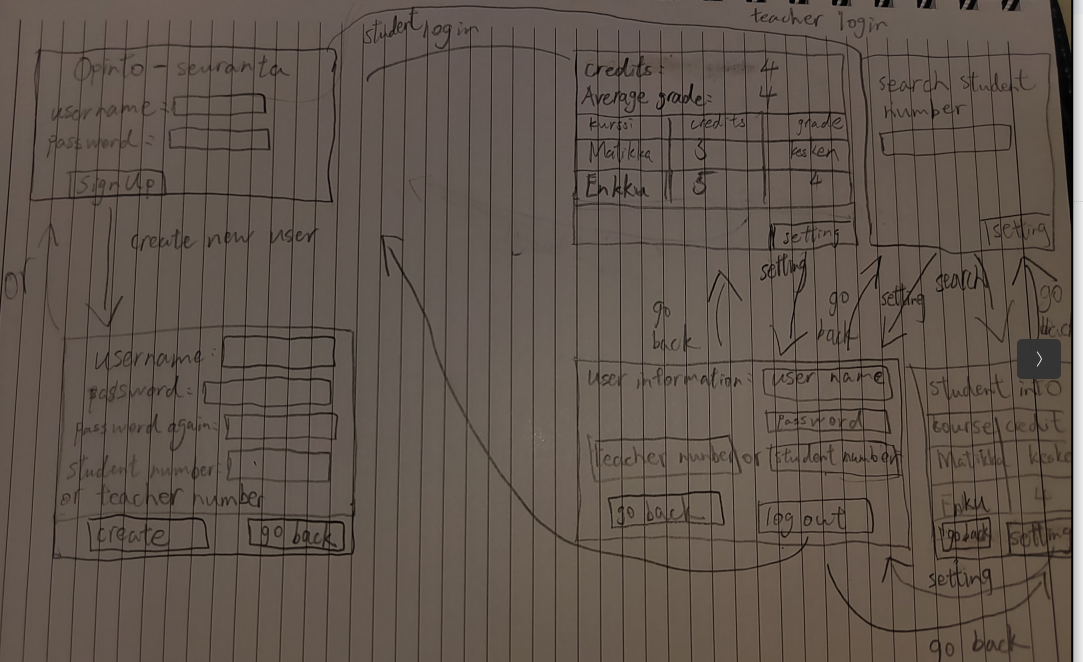 student login
teacher login
Opinto-seuranta
username:
password:
Sign Up
create new user
or
username:
password:
password again:
student number:
or teacher number
create
go back
credits: 4
Average grade: 4
kurssi credits grade
Matikka 5 kesken
Enkku 5 4
setting
search student
number
setting
go
back
setting
go
back
setting
search
go
user information: user name
password
teacher number or student number
go back
log out
student info
course credit
Matikka
4
go back
setting
setting
go back